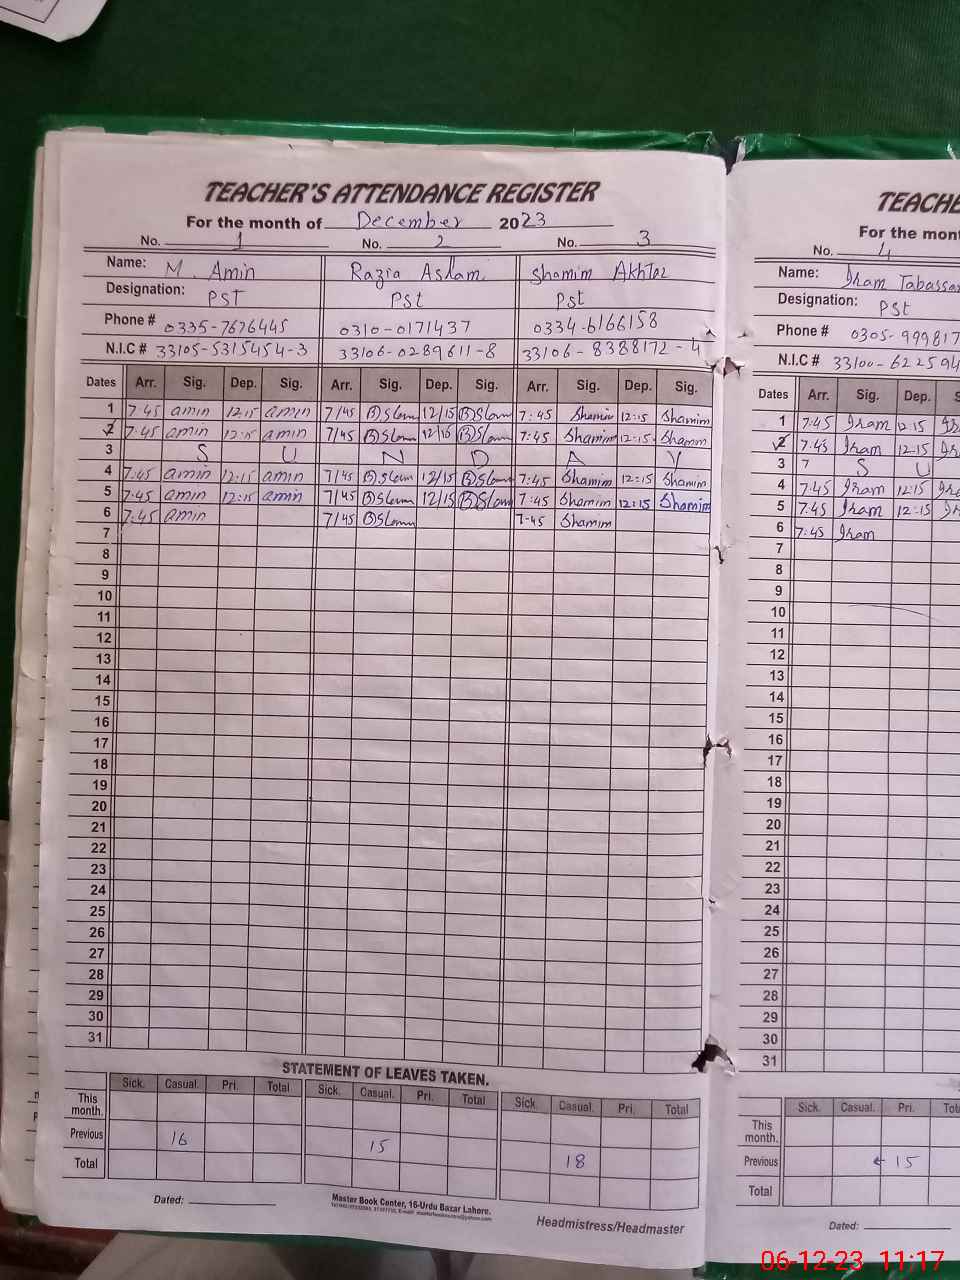 TEACHER'S ATTENDANCE REGISTER
For the month of December 2023
No. 1 No. 2 No. 3
Name: M. Amin Razia Aslam Shamim Akhtar
Designation: PST Pst Pst
Phone # 0335-7676445 0310-0171437 0334-6166158
N.I.C # 33105-5315454-3 33106-0289611-8 33106-8388172-4
Dates Arr. Sig. Dep. Sig. Arr. Sig. Dep. Sig. Arr. Sig. Dep. Sig.
1 7:45 amin 12:15 amin 7/45 12/15 7:45 Shamim 12:15 Shamim
2 7:45 amin 12:15 amin 7/45 12/15 7:45 Shamim 12:15 Shamim
3 S U N D A Y
4 7:45 amin 12:15 amin 7/45 12/15 7:45 Shamim 12:15 Shamim
5 7:45 amin 12:15 amin 7/45 12/15 7:45 Shamim 12:15 Shamim
6 7:45 amin 7/45 7:45 Shamim
7
8
9
10
11
12
13
14
15
16
17
18
19
20
21
22
23
24
25
26
27
28
29
30
31
STATEMENT OF LEAVES TAKEN.
Sick. Casual. Pri. Total Sick. Casual. Pri. Total Sick. Casual. Pri. Total
This month.
Previous 16 15 18
Total
Dated:
Master Book Center, 16-Urdu Bazar Lahore.
Headmistress/Headmaster
TEACHE
For the mont
No. 4
Name: Iram Tabassa
Designation: PSt
Phone # 0305-999817
N.I.C # 33100-622594
Dates Arr. Sig. Dep. S
1 7:45 Iram 12:15
2 7:45 Iram 12:15
3 7 S U
4 7:45 Iram 12:15
5 7:45 Iram 12:15
6 7:45 Iram
7
8
9
10
11
12
13
14
15
16
17
18
19
20
21
22
23
24
25
26
27
28
29
30
31
Sick. Casual. Pri. Tot
This month.
Previous 15
Total
Dated:
06-12-23 11:17